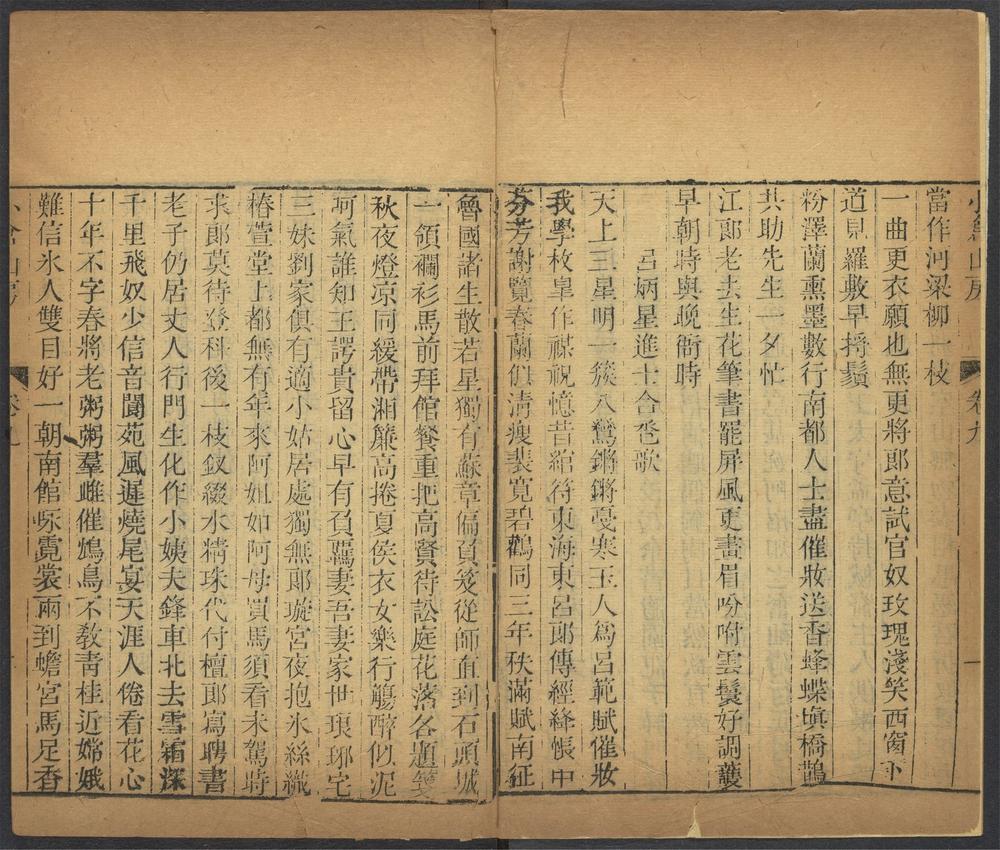 小倉山房
卷九
一
當作河梁柳一枝
一曲更衣願也無更將郎意試官奴玫瑰淺笑西窗下
道見羅敷早捋鬚
粉澤蘭熏墨數行南都人士盡催妝送香蜂蝶塡橋鵲
共助先生一夕忙
江郎老去生花筆書罷屏風更畫眉吩咐雲鬟好調護
早朝時與晚衙時
呂炳星進士合巹歌
天上三星明一簇八鸞鏘鏘戞寒玉人爲呂範賦催妝
我學枚皋作禖祝憶昔綰符東海東呂郎傳經絳帳中
芬芳謝覽春蘭俱清瘦裴寬碧鸛同三年秩滿賦南征
魯國諸生散若星獨有蘇章偏負笈從師直到石頭城
一領襴衫馬前拜館餐重把高賢待訟庭花落各題箋
秋夜燈凉同緩帶湘簾高捲夏侯衣女樂行觴醉似泥
珂氣誰知王諤貴留心早有負羈妻吾妻家世琅琊宅
三妹劉家俱有適小姑居處獨無郎璇宮夜抱氷絲織
椿萱堂上都無有年來阿姐如阿母買馬須看未駕時
求郎莫待登科後一枝釵綴水精珠代付檀郎寫聘書
老子仍居丈人行門生化作小姨夫鋒車北去雪霜深
千里飛奴少信音閬苑風遲燒尾宴天涯人倦看花心
十年不字春將老粥粥羣雌催鴆鳥不敎靑桂近嫦娥
難信氷人雙目好一朝南館咏霓裳兩到蟾宮馬足香
小倉山房
卷九